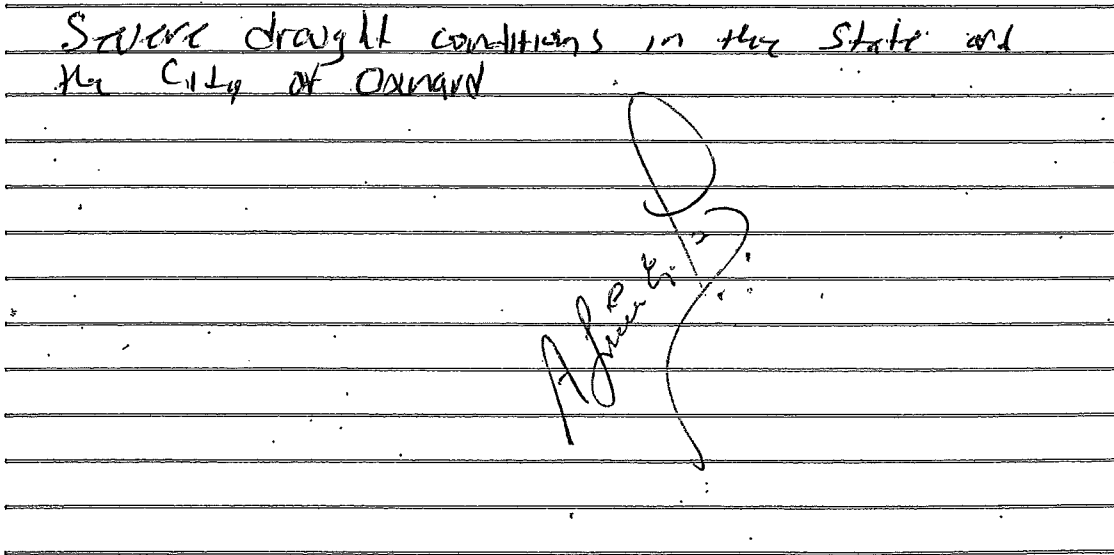 Severe drought conditions in the State and
the City of Oxnard